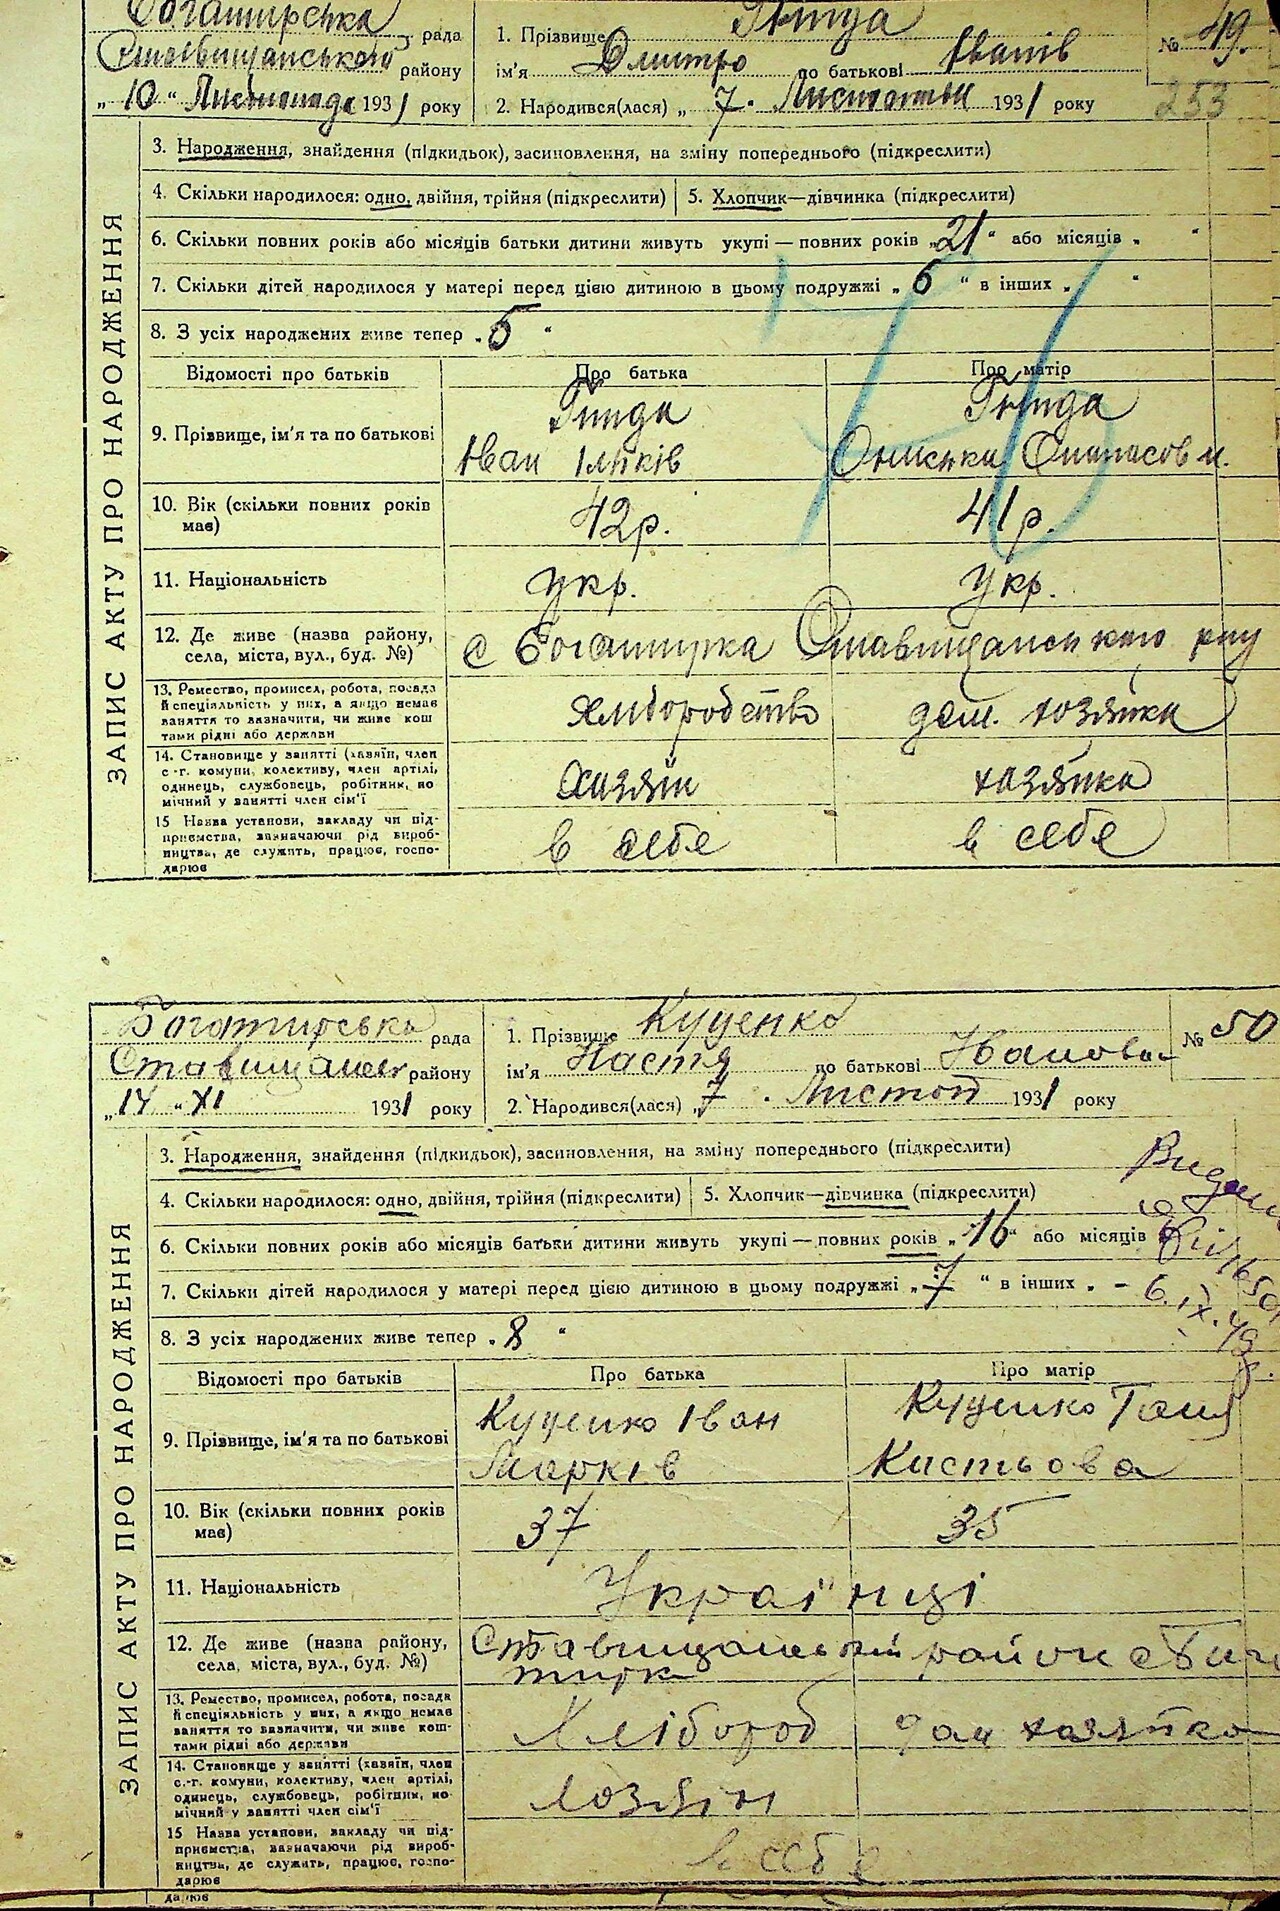 Богатирська рада
Ставищанського району
„ 10 “ Листопада 1931 року
1. Прізвище
ім'я Дмитро по батькові Іванів
2. Народився(лася) „ 7 . 1931 року
№ 49.
253
ЗАПИС АКТУ ПРО НАРОДЖЕННЯ
3. Народження, знайдення (підкидьок), засиновлення, на зміну попереднього (підкреслити)
4. Скільки народилося: одно, двійня, трійня (підкреслити) 5. Хлопчик—дівчинка (підкреслити)
6. Скільки повних років або місяців батьки дитини живуть укупі — повних років „ 21 “ або місяців „ “
7. Скільки дітей народилося у матері перед цією дитиною в цьому подружжі „ 6 “ в інших „ “
8. З усіх народжених живе тепер „ 5 “
Відомості про батьків Про батька Про матір
9. Прізвище, ім'я та по батькові
Іван Ільків
10. Вік (скільки повних років має) 42р. 41р.
11. Національність укр. укр.
12. Де живе (назва району, села, міста, вул., буд. №) с Богатирка Ставищанського р-ну
13. Ремество, промисел, робота, посада
й спеціяльність у них, а якщо немає
заняття то зазначити, чи живе кош
тами рідні або держави
хліборобство дом. хозяйка
14. Становище у занятті (хазяїн, член
с.-г. комуни, колективу, член артілі,
одинець, службовець, робітник, по
мічний у занятті член сім'ї
хазяїн хазяйка
15 Назва установи, закладу чи під-
приємства, зазначаючи рід вироб-
ництва, де служить, працює, госпо-
дарює
в себе в себе
Богатирська рада
району
„ 14 “ XI 1931 року
1. Прізвище Куценко
ім'я Настя по батькові Іванова
2. Народився(лася) „ 7 . Листоп 1931 року
№ 50
ЗАПИС АКТУ ПРО НАРОДЖЕННЯ
3. Народження, знайдення (підкидьок), засиновлення, на зміну попереднього (підкреслити)
4. Скільки народилося: одно, двійня, трійня (підкреслити) 5. Хлопчик—дівчинка (підкреслити)
6. Скільки повних років або місяців батьки дитини живуть укупі — повних років „ 16 “ або місяців
7. Скільки дітей народилося у матері перед цією дитиною в цьому подружжі „ 7 “ в інших „ –
8. З усіх народжених живе тепер „ 8 “
6.IX.49
Відомості про батьків Про батька Про матір
9. Прізвище, ім'я та по батькові
Куценко Іван Куценко Таня
Марків Кистьова
10. Вік (скільки повних років має) 37 35
11. Національність Українці
12. Де живе (назва району, села, міста, вул., буд. №)
13. Ремество, промисел, робота, посада
й спеціяльність у них, а якщо немає
заняття то зазначити, чи живе кош-
тами рідні або держави
Хлібороб дом хазяйка
14. Становище у занятті (хазяїн, член
с.-г. комуни, колективу, член артілі,
одинець, службовець, робітник, по
мічний у занятті член сім'ї
хозяїн
15 Назва установи, закладу чи під-
приємства, зазначаючи рід вироб-
ництва, де служить, працює, госпо-
дарює
в себе
дарює